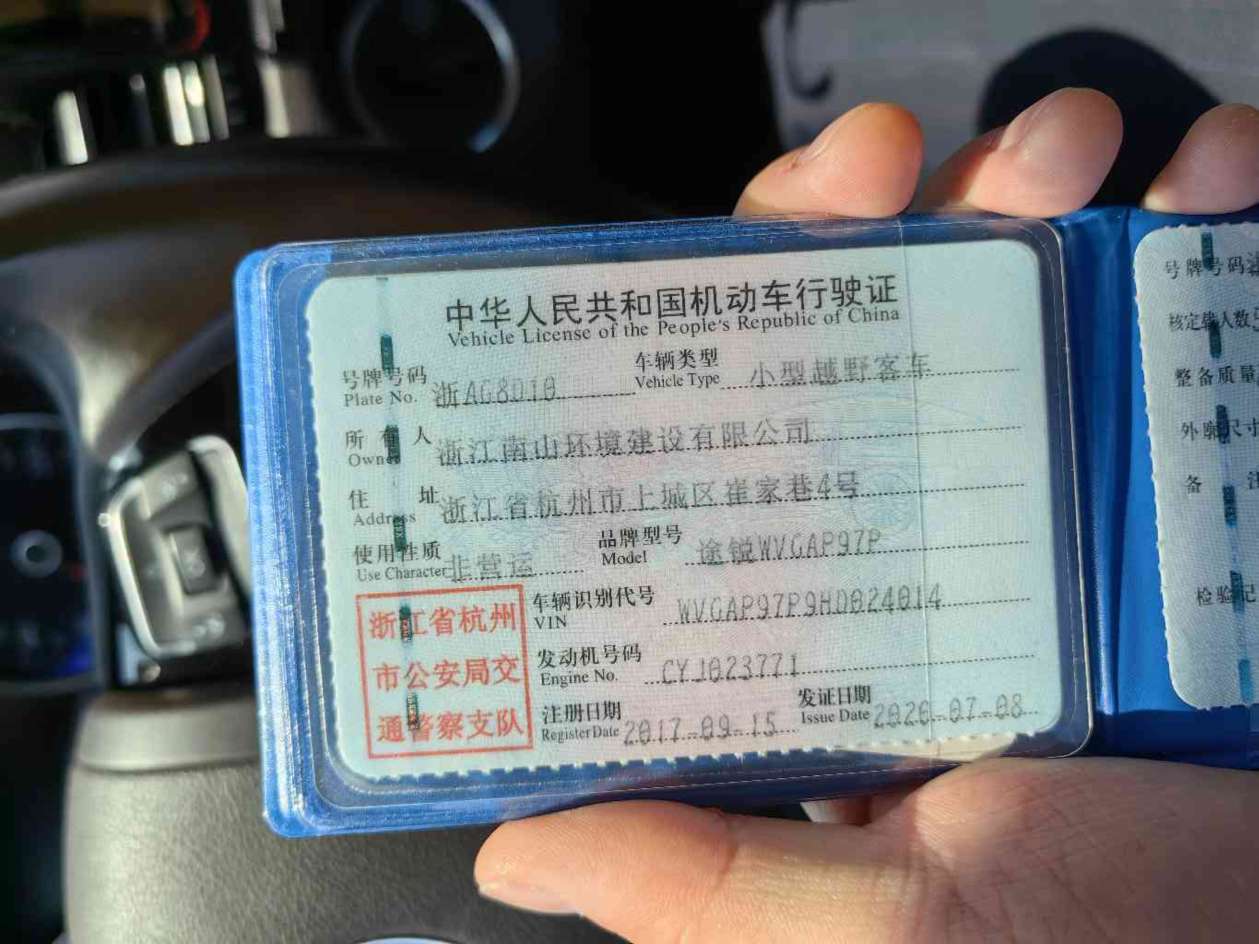 中华人民共和国机动车行驶证
Vehicle License of the People's Republic of China
号牌号码 浙AG8D10 车辆类型 小型越野客车
Plate No. Vehicle Type
所有人 浙江南山环境建设有限公司
Owner
住址 浙江省杭州市上城区崔家巷4号
Address
使用性质 非营运 品牌型号 途锐WVGAP97P
Use Character Model
浙江省杭州
市公安局交
通警察支队
车辆识别代号 WVGAP97P9HD024014
VIN
发动机号码 CYJ023771
Engine No.
注册日期 2017-09-15 发证日期 2020-07-08
Register Date Issue Date
号牌号码
核定载人数
整备质量
外廓尺寸
备注
检验记